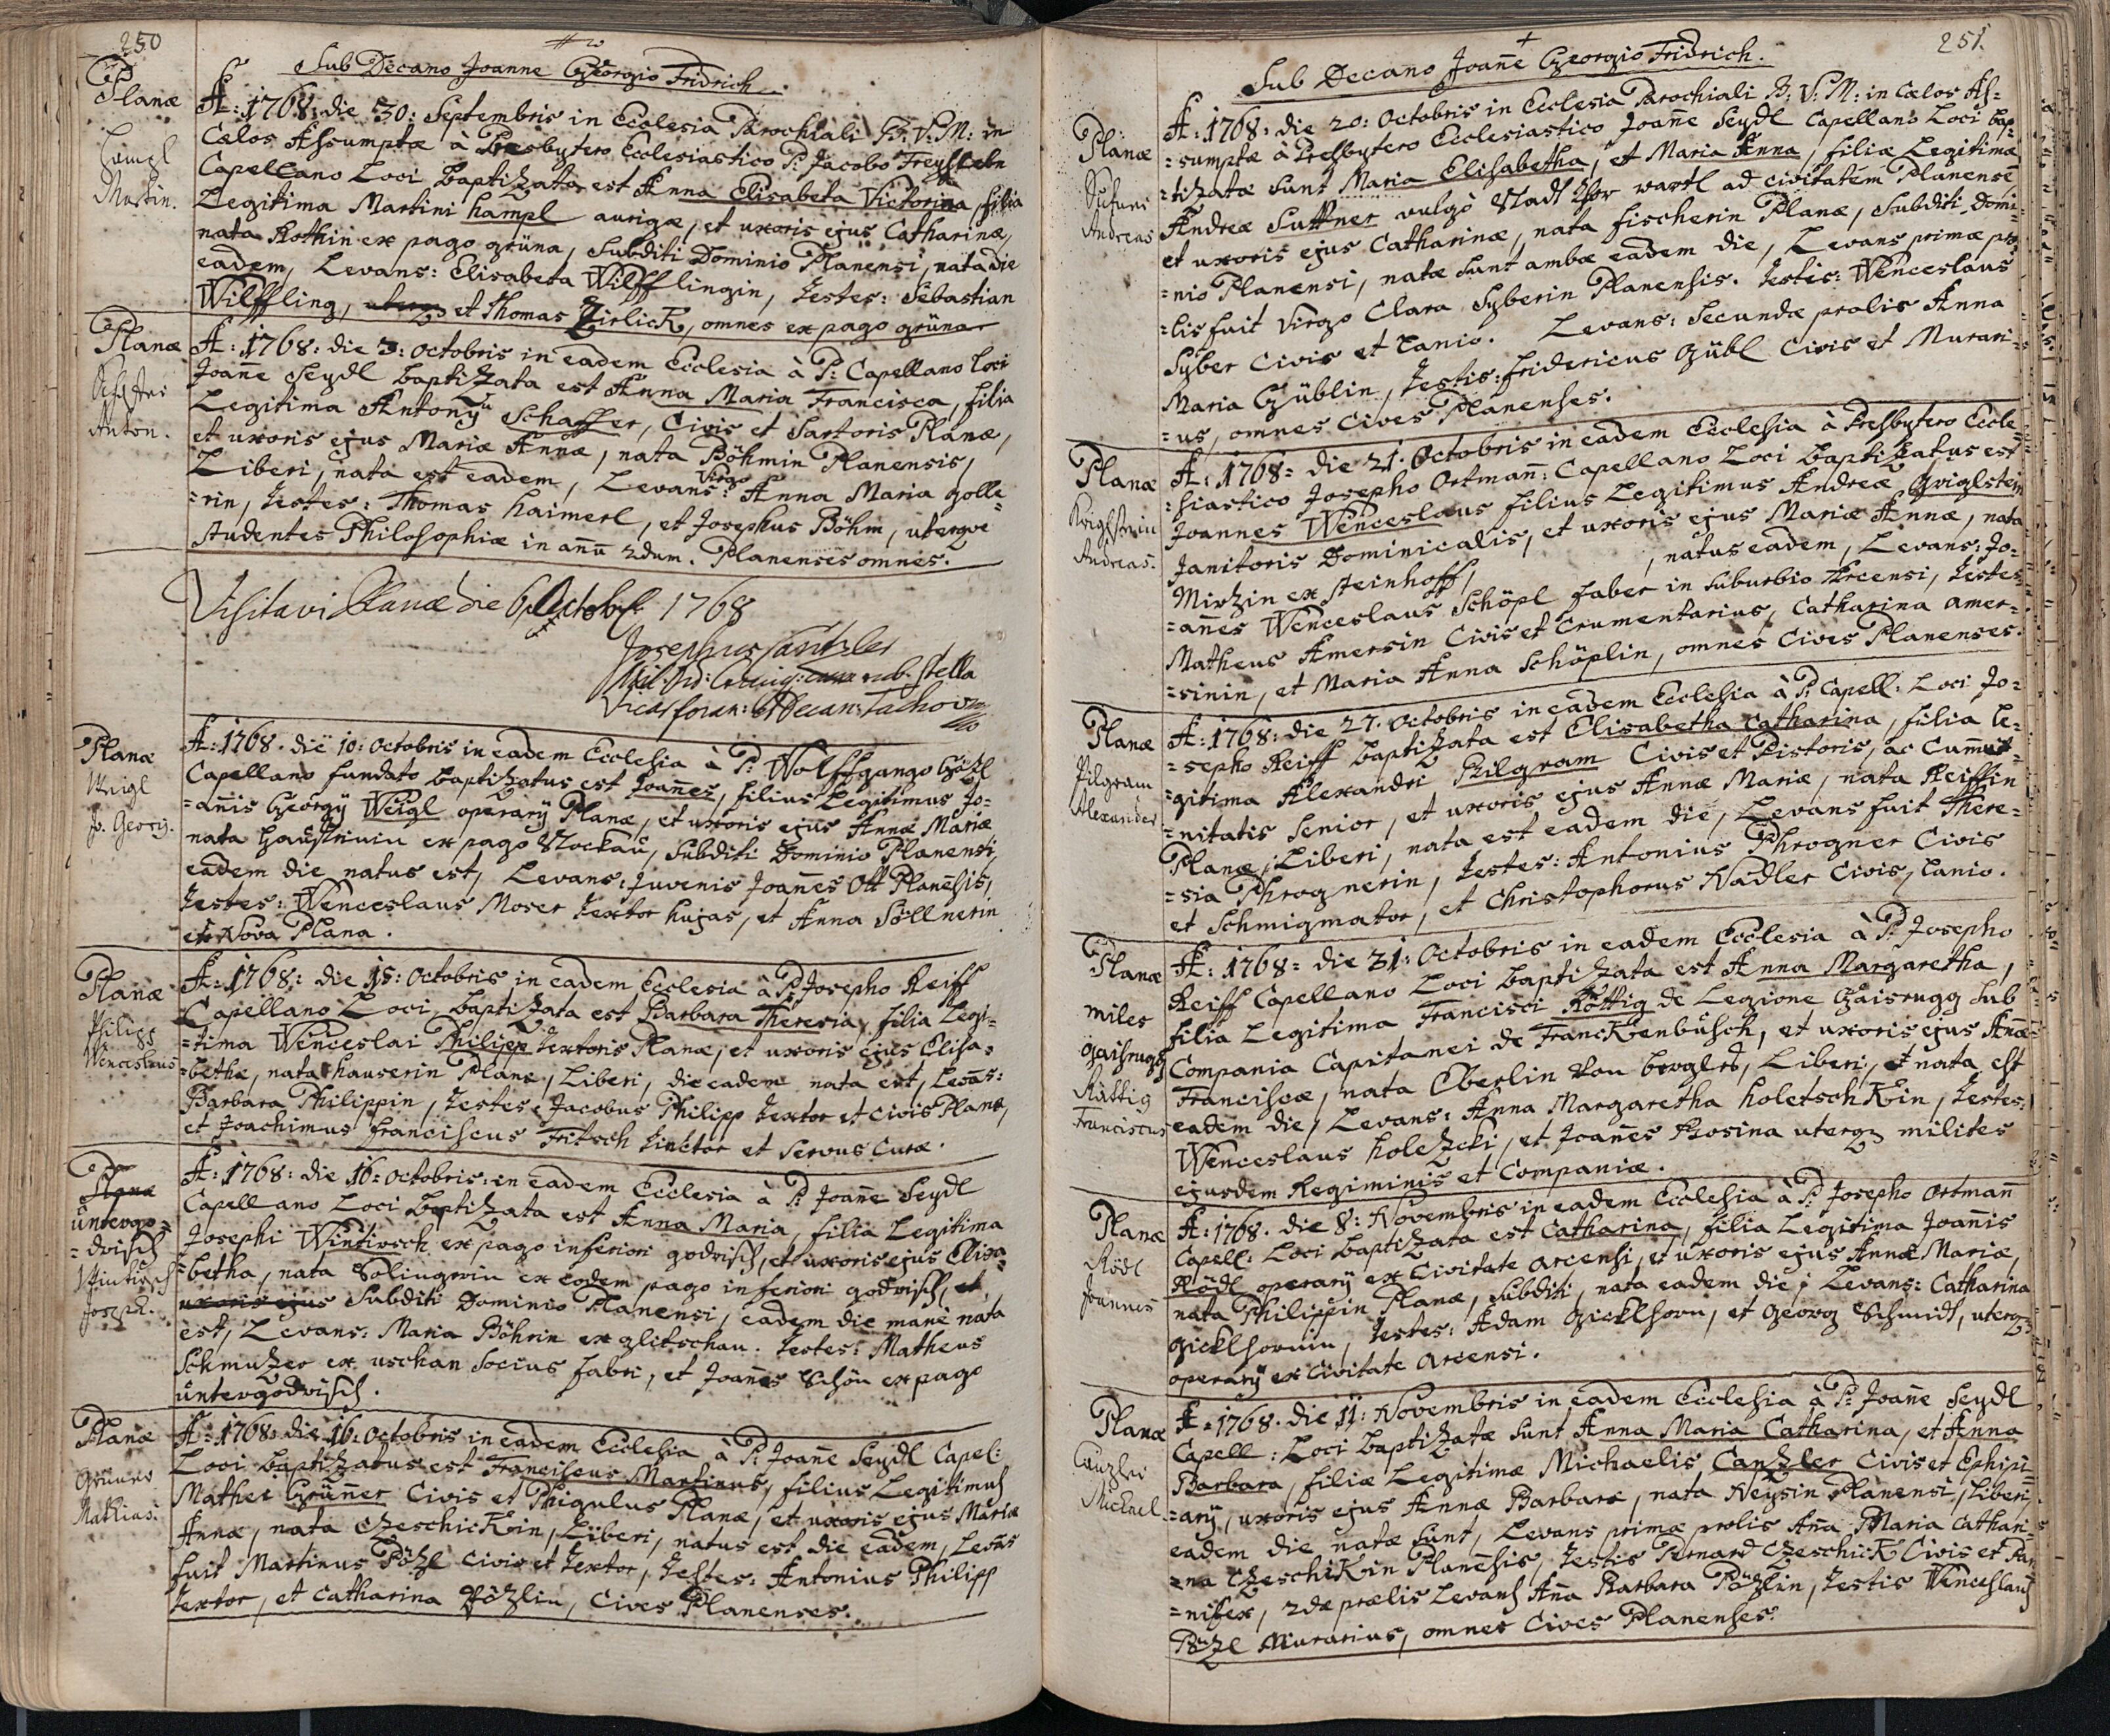 250
Sub Decano Joanne Georgio Fridrich.
Planæ
Hampl
Martin.
A: 1768: die 30: Septembris in Ecclesia Parochiali B: V: M: in
Cælos Assumptæ à Presbytero Ecclesiastico P: Jacobo
Capellano Loci baptizata est Anna Elisabeta Victorina, filia
Legitima Martini hampl aurigæ, et uxoris ejus Catharinæ,
nata Rothin ex pago grüna, Subditi Dominio Planensi, nata die
eadem, Levans: Elisabeta Wilfflingin, Testes: Sebastian
Wilffling, et Thomas Zirlick, omnes ex pago grüna
Planæ
Schaffer
Anton.
A: 1768: die 3: Octobris in eadem Ecclesia à P: Capellano loci
Joañe Seydl baptizata est Anna Maria Francisca, filia
Legitima Antonÿ Schaffer, Civis et Sartoris Planæ,
et uxoris ejus Mariæ Annæ, nata Böhmin Planensis,
Liberi, nata est eadem, Levans: Virgo Anna Maria golle-
=rin, Testes: Thomas haimerl, et Josephus Böhm, uterqve
studentes Philosophiæ in añũ 2dum. Planenses omnes.
Visitavi Planæ die 6 Octobr: 1768
Josephus
stella
Vicar foran: et Decan: Tachov
Planæ
Weigl
Jo. Georg.
A: 1768. die 10: Octobris in eadem Ecclesia à P: Wolffgango Götzl
Capellano fundato baptizatus est Joañes, filius Legitimus Jo=
=añis Georgÿ Weigl operarÿ Planæ, et uxoris ejus Annæ Mariæ
nata ex pago Stockau, Subditi Dominio Planensi,
eadem die natus est, Levans: Juvenis Joañes Ott Planẽsis,
Testes: Wenceslaus Moser textor hujas, et Anna Söllnerin
ex Nova Plana.
Planæ
Philipp
Wenceslaus
A: 1768: die 15: Octobris in eadem Ecclesia à P: Josepho Reiff
Capellano Loci baptizata est Barbara Theresia, filia Legi=
=tima Wenceslai Philipp textoris Planæ, et uxoris ejus Elisa=
=bethæ, nata hauserin Planæ, Liberi, die eadem nata est, Levãs:
Barbara Philippin, Testes: Jacobus Philipp textor et Civis Planæ,
et Joachimus Franciscus Fritsch tinctor et Servus Curæ.
Planæ
untergo=
=drisch
Wintirsch
Joseph.
A: 1768: die 16: Octobris: in eadem Ecclesia à P: Joañe Seydl
Capellano Loci baptizata est Anna Maria, filia Legitima
Josephi Wintirsch ex pago inferiori godrisch, et uxoris ejus Elisa
=betha, nata Solingerin ex eodem pago inferiori godrisch, et
uxoris ejus Subditi Dominio Planensi, eadem die mane nata
est, Levans: Maria Böhrin ex glitschau. Testes: Matheus
Schmutzer ex uschau Socius fabri, et Joañes Schön ex pago
untergodrisch.
Planæ
Grünner
Mathias.
A: 1768: die 16: Octobris in eadem Ecclesia à P: Joañe Seydl Capel:
Loci baptizatus est Franciscus Martinus, filius Legitimus
Mathei Grünner Civis et Phigulus Planæ, et uxoris ejus Mariæ
Annæ, nata Czeschickin, Liberi, natus est die eadem, Levãs
fuit Martinus Pötzl Civis et textor, Testes: Antonius Philipp
textor, et Catharina Pötzlin, Cives Planenses.
251.
Sub Decano Joañe Georgio Fridrich.
Planæ
Andreas
A: 1768: die 20: Octobris in Ecclesia Parochiali B: V: M: in Cælos As=
=sumptæ à Presbytero Ecclesiastico Joañe Seydl Capellano Loci bap=
=tizatæ sunt Maria Elisabetha, et Maria Anna, filiæ Legitimæ
Andreæ Suttner vulgò Stadt Thor wartl ad civitatem Planensẽ
et uxoris ejus Catharinæ, nata fischerin Planæ, Subditi Domi=
=nio Planensi, natæ sunt ambæ eadem die, Levans primæ pro
=lis fuit Virgo Clara Syberin Planensis. Testis: Wenceslaus
Syber Civis et Lanio. Levans: Secundæ prolis Anna
Maria Güblin, Testis: fridericus Gübl Civis et Murari=
=us, omnes Cives Planenses.
Planæ
Andreas.
A: 1768= die 21: Octobris in eadem Ecclesia à Presbytero Eccle=
=siastico Josepho Ortmañ: Capellano Loci baptizatus est
Joannes Wenceslaus filius Legitimus Andreæ Griglstein
Janitoris Dominicalis, et uxoris ejus Mariæ Annæ, nata
Mirzin ex steinhoff, , natus eadem, Levans: Jo=
=añes Wenceslaus Schöpl faber in Suburbio Arcensi, Testes
Matheus Amersin Civis et Crumentarius, Catharina amer=
=sinin, et Maria Anna Schöplin, omnes Cives Planenses.
Planæ
Pilgram
Alexander
A: 1768: die 27. Octobris in eadem Ecclesia à P: Capell: Loci Jo=
=sepho Reiff baptizata est Elisabetha Catharina, filia le=
=gitima Alexandri Pilgram Civis et Pistoris, ac Cum̃u=
=nitatis Senior, et uxoris ejus Annæ Mariæ, nata Reiffin
Planæ, Liberi, nata est eadem die, Levans fuit There=
=sia Phrognerin, Testes: Antonius Phrogner Civis
et Schmigmator, et Christophorus Nadler Civis, Lanio.
Planæ
miles
gaisrugg
Rättig
Franciscus
A: 1768= die 31: Octobris in eadem Ecclesia à P: Josepho
Reiff Capellano Loci baptizata est Anna Margaretha,
filia Legitima Francisci Röttig de Legione Gaisrugg sub
Compania Capitanei de Franckenbusch, et uxoris ejus Añæ
Franciscæ, nata Eberlin von, Liberi, et nata est
eadem die, Levans: Anna Margaretha holetschkin, Testes:
Wenceslaus holetzcki, et Joañes Rosina uterqз milites
ejusdem Regiminis et Companiæ.
Planæ
Rödl
Joannes
A: 1768. die 8: Novembris in eadem Ecclesia à P: Josepho Ortmañ
Capell: Loci baptizata est Catharina, filia Legitima Joañis
Rödl operarÿ ex Civitate arcensi, et uxoris ejus Annæ Mariæ,
nata Philippin Planæ, Subditi, nata eadem die, Levans: Catharina
gicklhornin, Testes: Adam gicklhorn, et georg Schmidt, uterqз
operarÿ ex Civitate arcensi.
Planæ
Canzler
Michael.
A: 1768. die 11: Novembris in eadem Ecclesia à P: Joañe Seydl
Capell: Loci baptizatæ sunt Anna Maria Catharina, et Anna
Barbara, filiæ Legitimæ Michaelis Canzler Civis et Ephipi=
=arÿ, uxoris ejus Annæ Barbaræ, nata Neysin Planensi, Liberi,
eadem die natæ sunt, Levans primæ prolis Aña Maria Cathari=
=na Czeschikin Planẽsis, Testis Bernard Czeschick Civis et Pan
=nifex, 2dæ prolis Levans Aña Barbara Pötzlin, Testis Wenceslaus
Pötzl Murarius, omnes Cives Planenses.